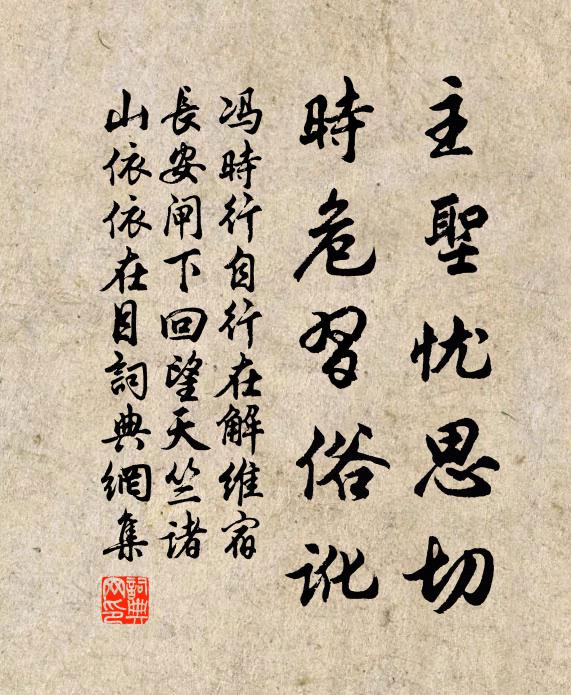 主聖忧思切
時危習俗訛
冯時行自行在解維宿
長安闸下回望天竺诸
山依依在目詞典網集